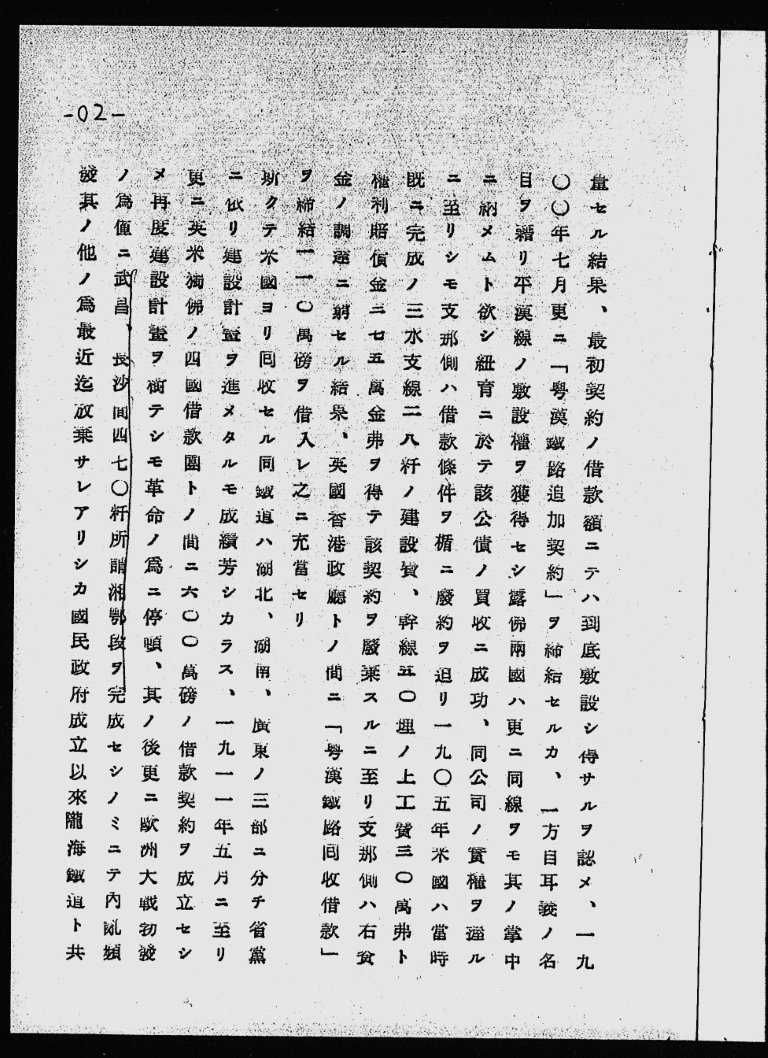 -02-
量セル結果、最初契約ノ借款額ニテハ到底敷設シ得サルヲ認メ、一九
〇〇年七月更ニ「粤漢鐵路追加契約」ヲ締結セルカ、一方白耳義ノ名
目ヲ藉リ平漢線ノ敷設權ヲ獲得セシ露佛兩國ハ更ニ同線ヲモ其ノ掌中
ニ納メムト欲シ紐育ニ於テ該公債ノ買收ニ成功、同公司ノ實權ヲ握ル
ニ至リシモ支那側ハ借款條件ヲ楯ニ廢約ヲ迫リ一九〇五年米國ハ當時
既ニ完成ノ三水支線二八粁ノ建設費、幹線五〇哩ノ土工費三〇萬弗ト
權利賠償金二七五萬金弗ヲ得テ該契約ヲ廢棄スルニ至リ支那側ハ右資
金ノ調達ニ窮セル結果、英國香港政廳トノ間ニ「粤漢鐵路回收借款」
ヲ締結一一〇萬磅ヲ借入レ之ニ充當セリ
斯クテ米國ヨリ回收セル同鐵道ハ湖北、湖南、廣東ノ三部ニ分チ省黨
ニ依リ建設計畫ヲ進メタルモ成績芳シカラス、一九一一年五月ニ至リ
更ニ英米獨佛ノ四國借款團トノ間ニ六〇〇萬磅ノ借款契約ヲ成立セシ
メ再度建設計畫ヲ樹テシモ革命ノ爲ニ停頓、其ノ後更ニ歐洲大戰勃發
ノ爲僅ニ武昌、長沙間四七〇粁所謂湘鄂段ヲ完成セシノミニテ內亂頻
發其ノ他ノ爲最近迄放棄サレアリシカ國民政府成立以來隴海鐵道ト共